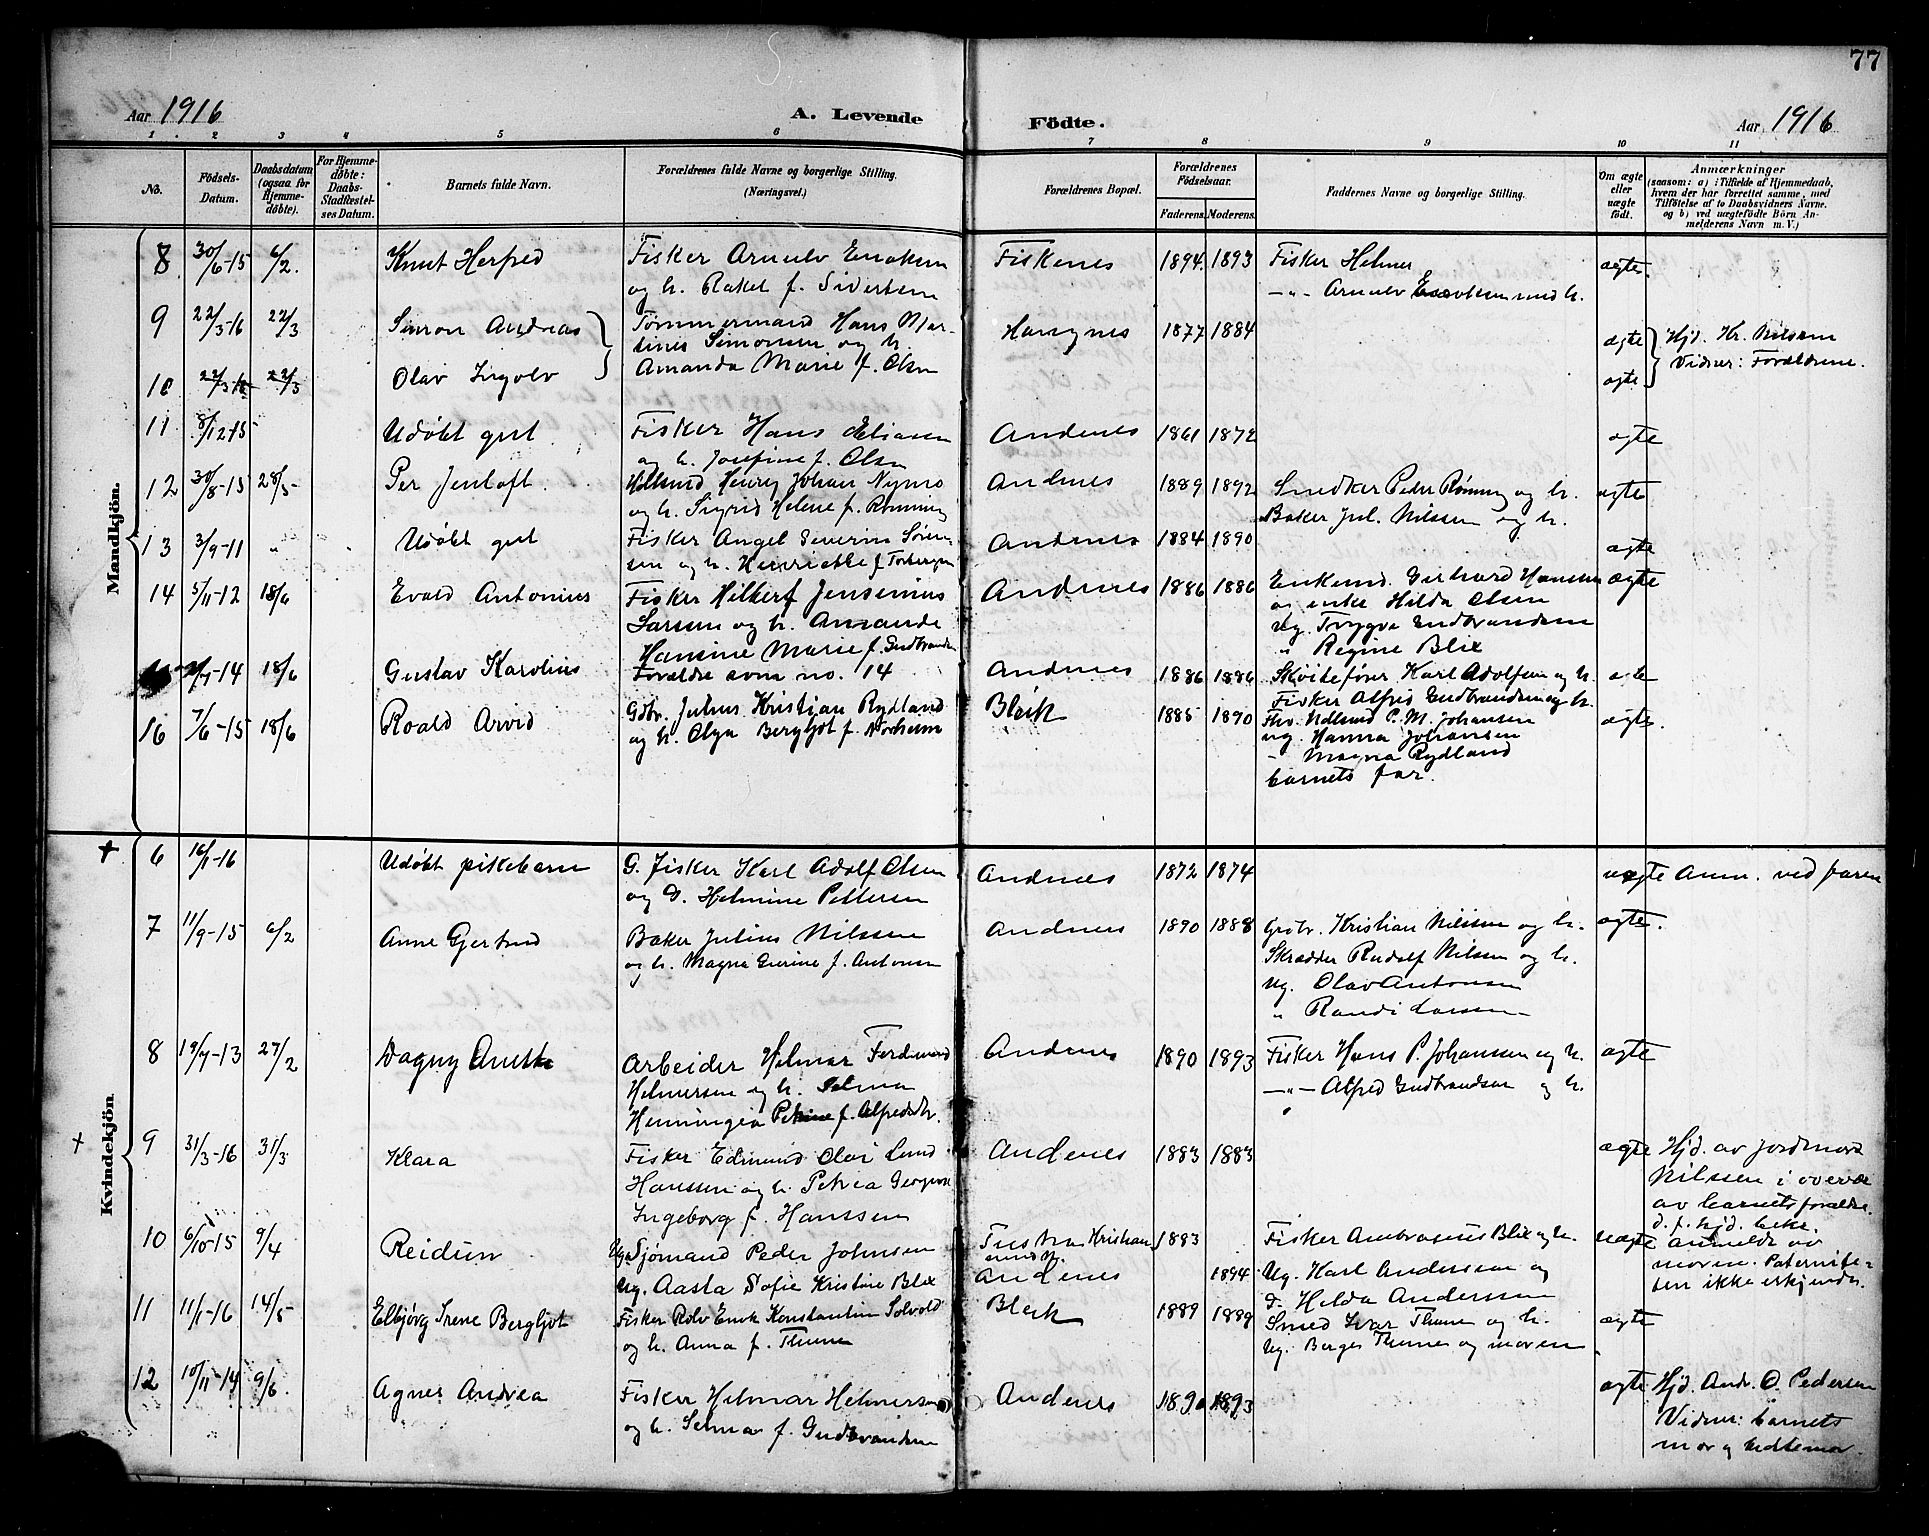 77
Aar 1916
A. Levende
Födte.
Aar 1916
1 2 3 4 5 6 7 8 9 10 11
No.
Födsels-
Datum.
Daabsdatum
(ogsaa for
Hjemme-
døbte).
For Hjemme-
døbte:
Daabs-
Stadfæstel-
ses Datum.
Barnets fulde Navn.
Forældrenes fulde Navne og borgerlige Stilling.
(Næringsvei.)
Forældrenes Bopæl.
Forældrenes
Fødselsaar.
Faderens. Moderens.
Faddernes Navne og borgerlige Stilling.
Om ægte
eller
uægte
født.
Anmærkninger
(saasom: a) i Tilfælde af Hjemmedaab,
hvem der har forrettet samme, med
Tilföielse af to Daabsvidners Navne.
og b) ved uægtefödte Börn An-
melderens Navn m. V.)
Mandkjön.
8. 30/6-15 6/2. Knut Herfred
Fisker Arnulv Enoksen
og h. Rakel f. Sivertsen
Fiskenes 1894. 1893
Fisker Helmer
—"— Arnulv Enoksen med h.
ægte
9 22/3-16 22/3 Simon Andreas
Tømmermand Hans Mar-
tines Simonsen og h.
Amanda Marie f. Olsen
1877 1884
ægte
Hjd. Kr. Nilsen
Vidner: Forældrene.
10 22/3-16 22/3 Olav Ingolv
ægte
11 8/12-15 Udøbt gut.
Fisker Hans Eliasen
og h. Josefine f. Olsen
Andenes 1861 1872
ægte
12 30/8-15 28/5- Per Jentoft.
Henry Johan Nymo
og h. Sigrid Helene f. Rønning
Andenes 1889 1892
Peder Rønning og h.
Baker Jul. Nilssen og h.
ægte
13 3/9-11 " Udøbt gut
Fisker Angel Severin Søren-
sen og h. Henriette f. Torbergsen
Andenes 1884 1890
ægte
14 5/11-12 18/6 Evald Antonius
Fisker Hilbert Jensenius
Larsen og h. Amanda
Hansine Marie f. Gudbrandsen
Andenes 1886 1886
Enkemd. Gerhard Hansen
og enke Hilda Olsen
Ug. Trygve Gudbrandsen
" Regine Blix
ægte
/7-14 18/6 Gustav Karolius
Forældre som no. 14
Andenes 1886 1886
Skøitefører Karl Adolfsen og h.
Fisker Alfred Gudbrandsen og h.
ægte
16 7/6-15 18/6 Roald Arvid
Gdbr. Julius Kristian Rydland
og h. Olga Bergljot f. Norheim
Bleik 1885 1890
P. M. Johansen
ug. Hanna Johansen
- Magna Rydland
barnets far.
ægte.
Kvindekjön.
+ 6 16/1-16 Udøbt pikebarn
G. fisker Karl Adolf Olsen
og D. Helmine Pettersen
Andenes 1872 1874
uægte Anm. ved faren
7 11/9-15 6/2 Anne Gjertrud
Baker Julius Nilssen
og h. Magna Gurine f. Antonsen
Andenes 1890 1888
Grdbr. Kristian Nilssen og h.
Skrædder Rudolf Nilssen og h.
Ug. Olav Antonsen
" Randi Larssen
ægte.
8 19/7-13 27/2 Dagny Anette
Arbeider Helmar Ferdinand
Helmersen og h. Selma
Henningea Petrine f. Alfredsdtr.
Andenes 1890 1893
Fisker Hans P. Johansen og h.
—"— Alfred Gudbrandsen og h.
ægte
+ 9 31/3-16 31/3 Klara
Fisker Edmund Olai Lund
Hanssen og h. Petrea Georgine
Ingeborg f. Hanssen
Andenes 1883 1883
ægte
Hjd. av jordmora
Nilssen i overvær
av barnets forældre.
d. f. hjd. bekr.
10 6/10-15 9/4 Reidun
Ug. Sjømand Peder Johnsen
Ug. Aasta Sofie Kristine Blix
Tustna Kristian-
sund N.
Andenes
1883 1894
Fisker Ambrosius Blix og h.
Ug. Karl Andersen og
d. Helda Anderssen
uægte
anmeldt av
moren. Paternite-
ten ikke erkjendt.
11 11/1-16 14/5 Elbjørg Irene Bergljot
Fisker Rolv Enok Konstantin Solvold
og h. Anna f. Thune
Bleik 1889 1889
Smed Ivar Thune og h.
Ug. Borges Thune og moren.
ægte
12 10/11-14 9/6. Agnes Andrea
Fisker Helmar Helmersen
og h. Selma f. Gudbrandsen
Andenes 1890 1893
ægte
Hjd. Andr. O. Pedersen
Vidner: barnets
mor og bedstemor.